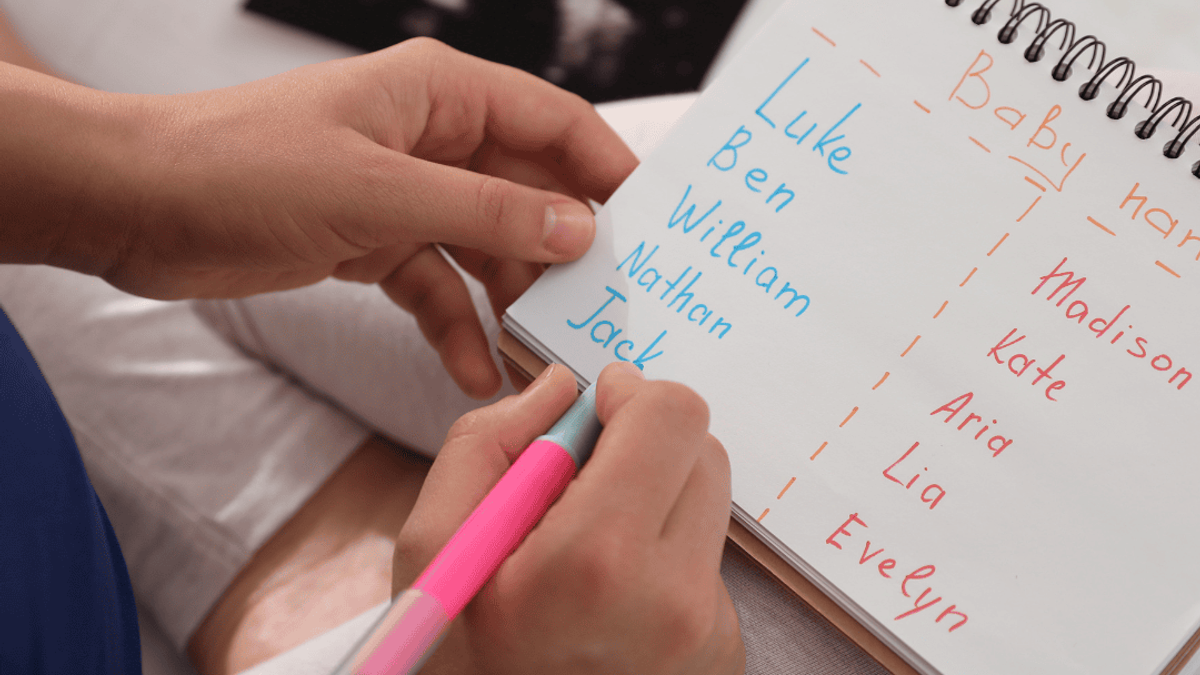 Baby
Luke
Ben
William
Nathan
Jack
Madison
Kate
Aria
Lia
Evelyn